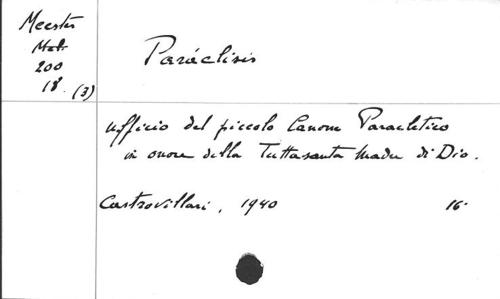 Meester
Met.
200
18. (3)
Paráclisis
Ufficio del piccolo Canone Paracletico
in onore della Tuttasanta Madre di Dio.
Castrovillari, 1940 16°